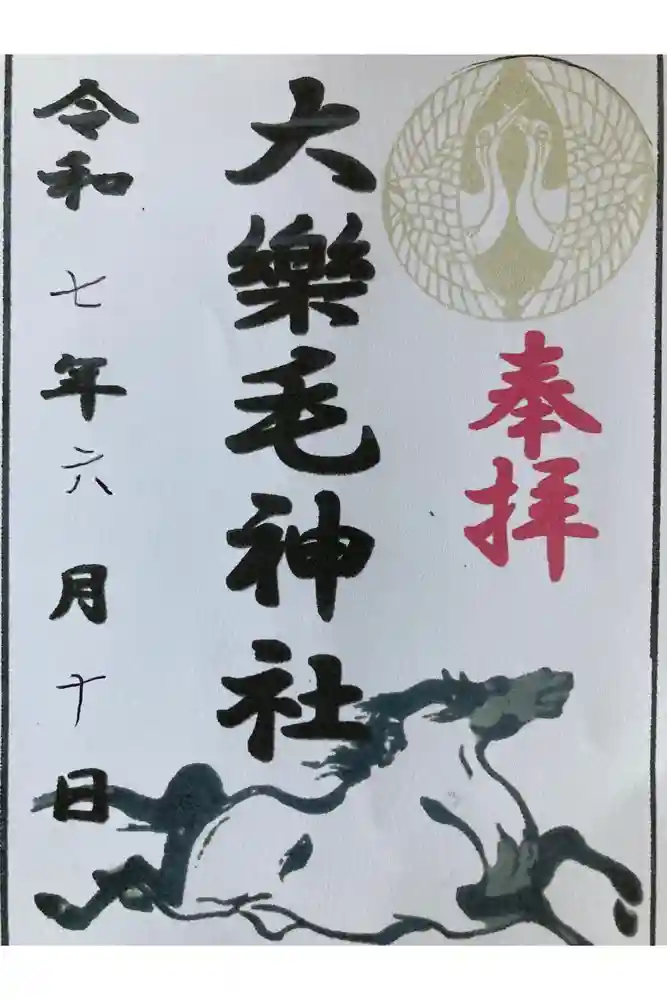 奉拝
大樂毛神社
令和七年六月十日